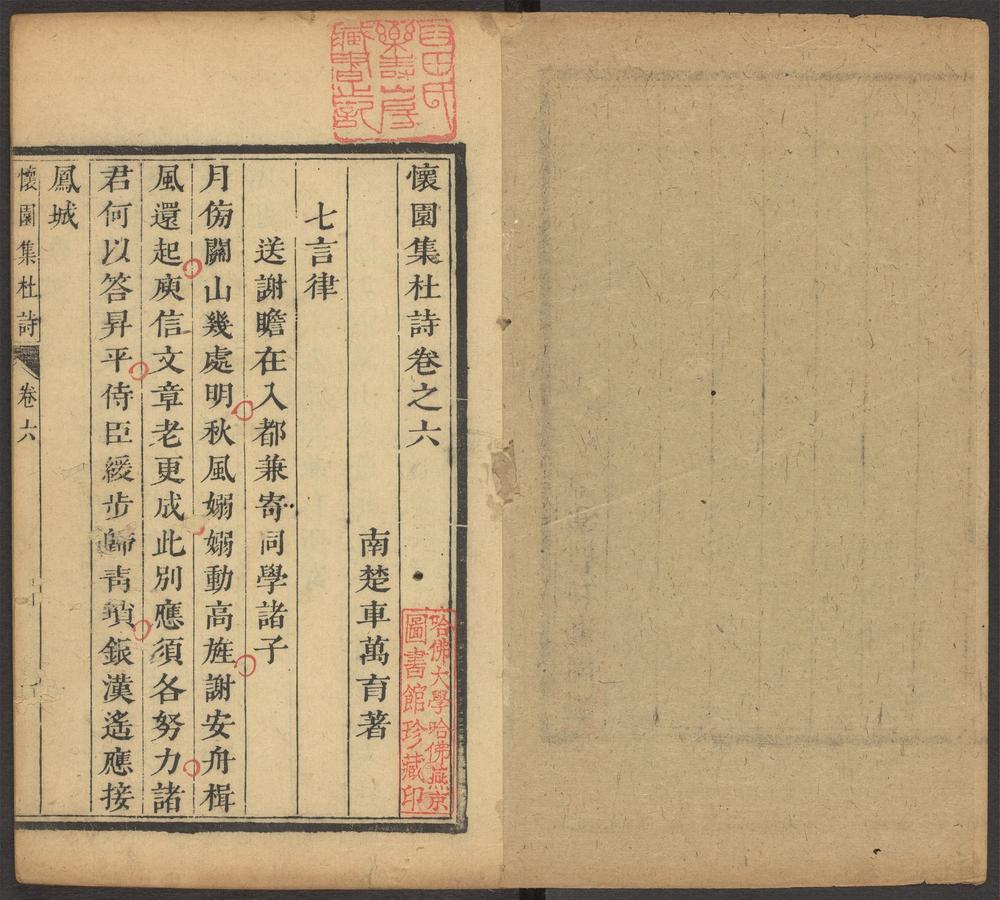 懷園集杜詩卷之六
南楚車萬育著
七言律
送謝瞻在入都兼寄同學諸子
月傍關山幾處明秋風嫋嫋動高旌謝安舟楫
風還起庾信文章老更成此別應須各努力諸
君何以答昇平侍臣緩步歸青瑣銀漢遙應接
鳳城
懷園集杜詩 卷六
樂壽山房
藏書之記
哈佛大學哈佛燕京
圖書館珍藏印